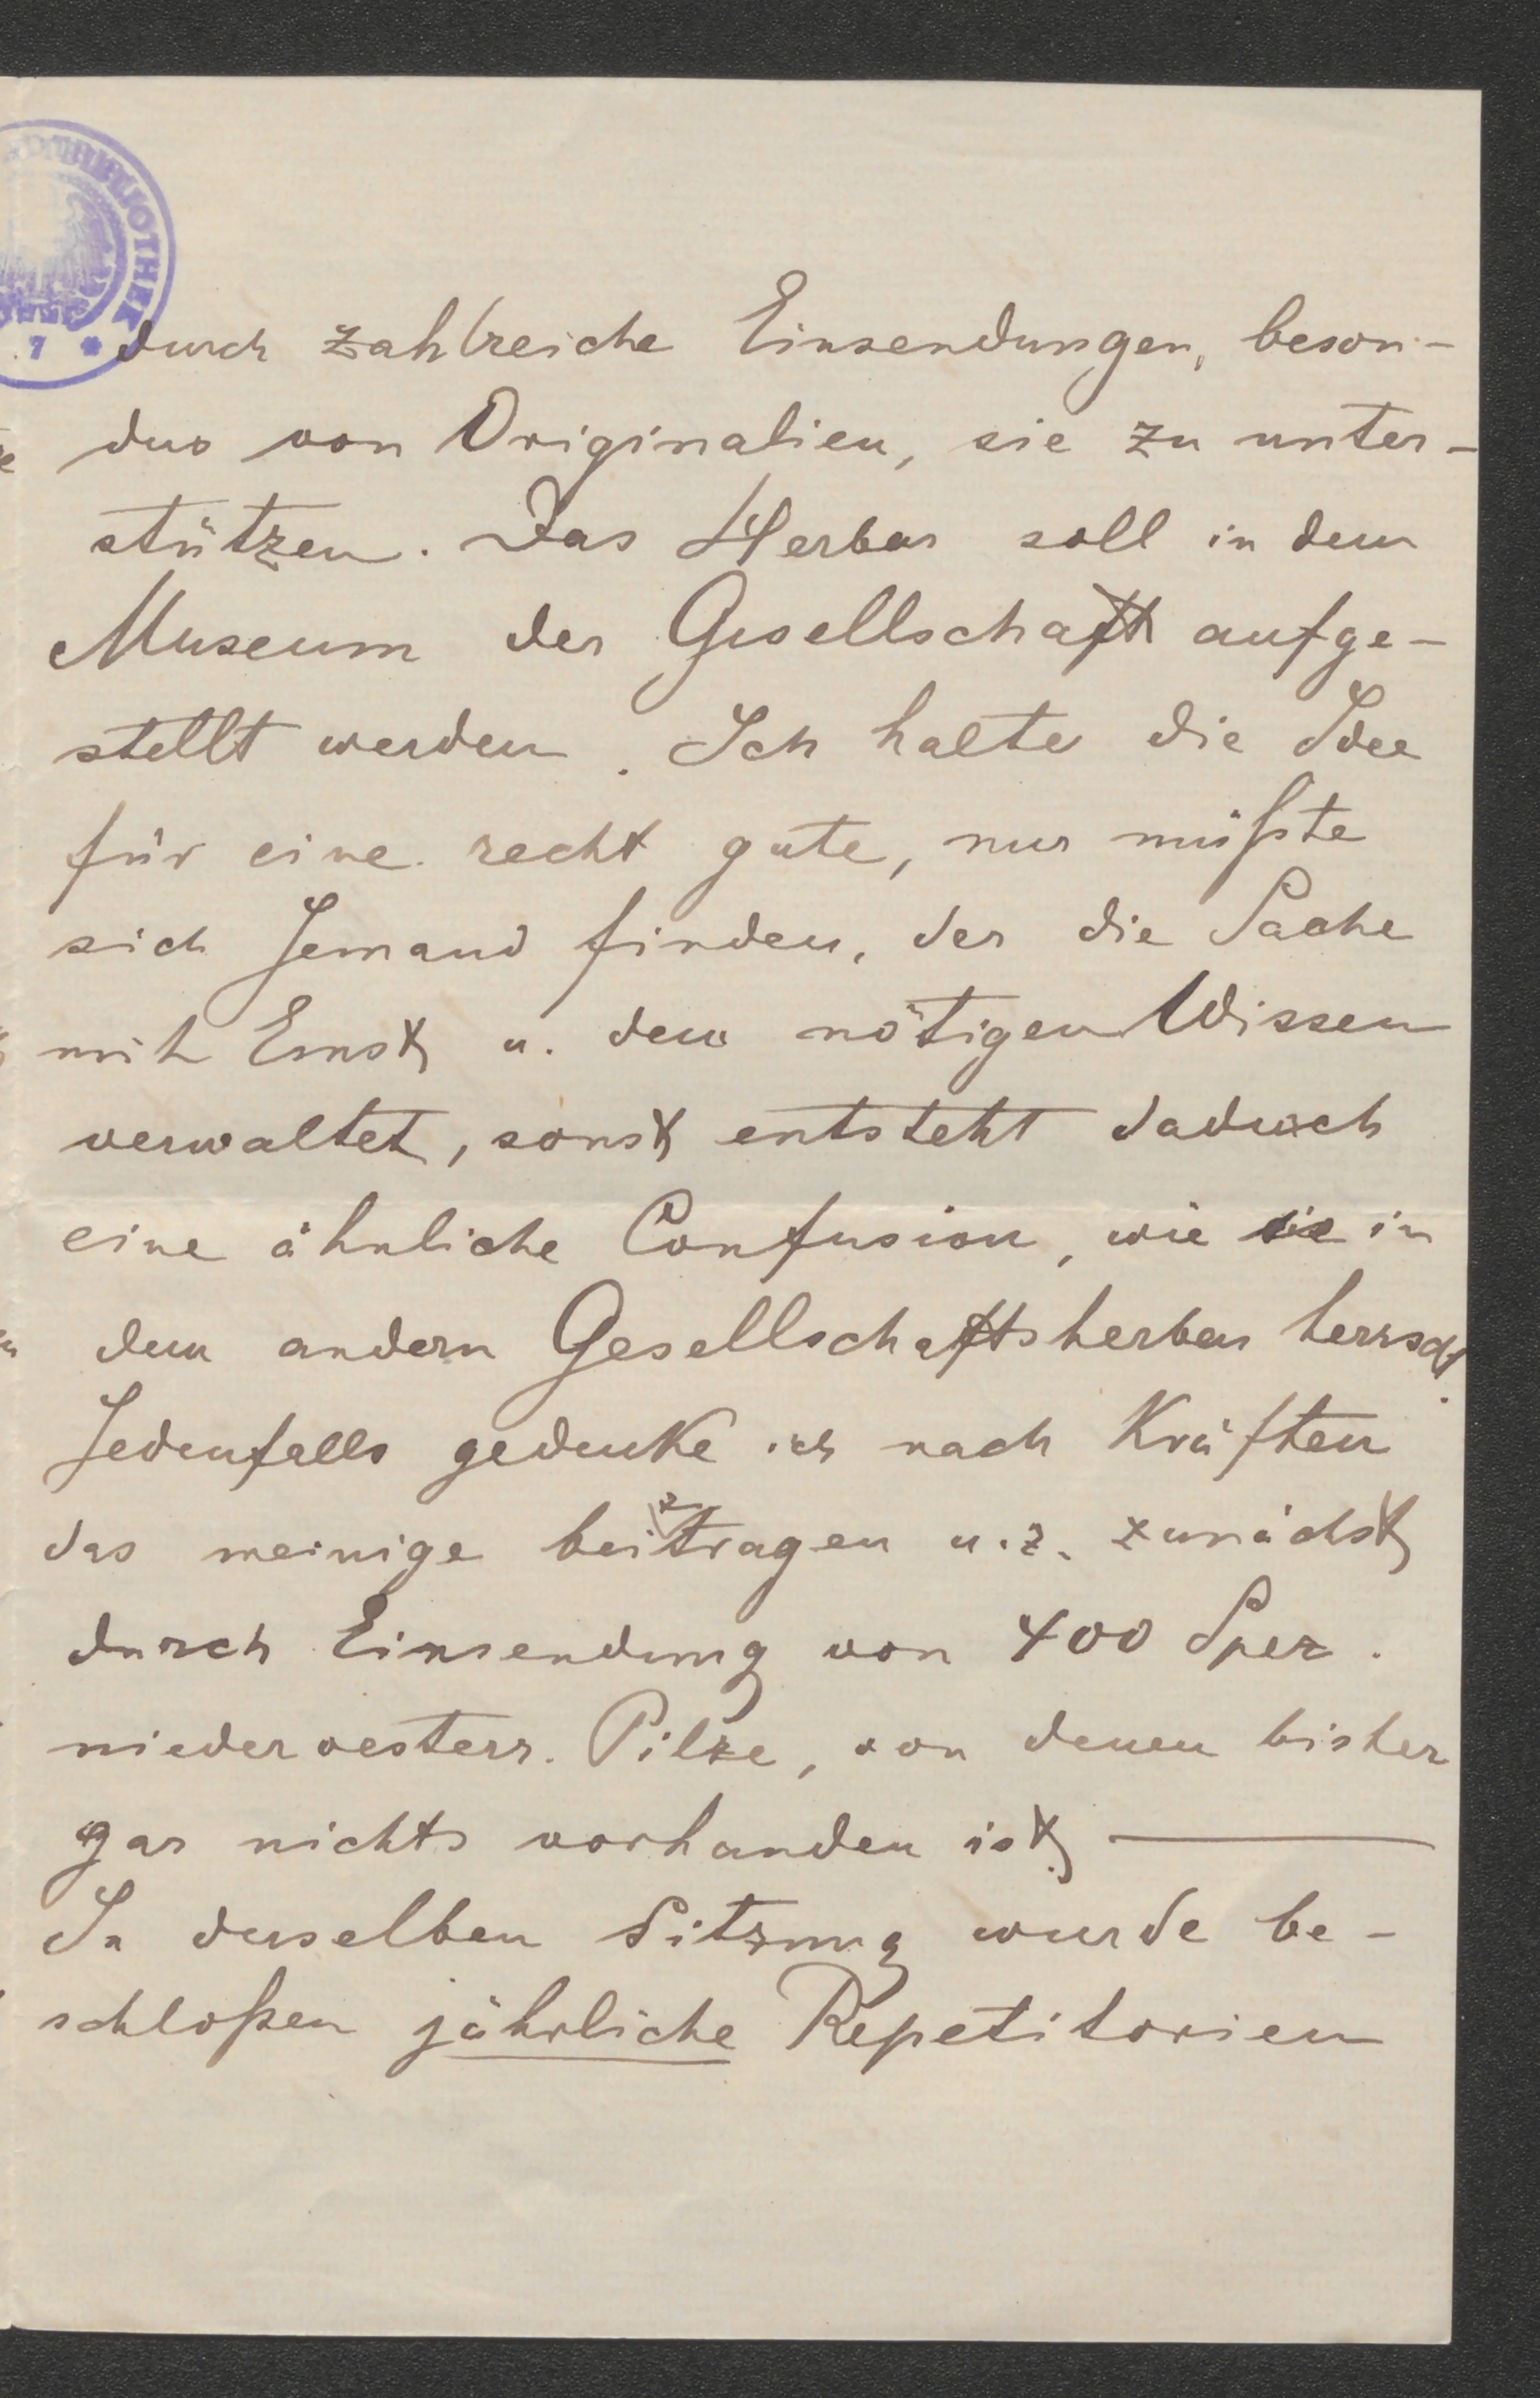 BIBLIOTHEK
7 *
durch zahlreiche Einsendungen, beson-
ders von Originalien, sie zu unter-
stützen. Das Herbar soll in dem
Museum der Gesellschaft aufge-
stellt werden. Ich halte die Idee
für eine recht gute, nur müßte
sich Jemand finden, der die Sache
mit Ernst u. dem nötigen Wissen
verwaltet, sonst entsteht dadurch
eine ähnliche Confusion, wie sie in
dem andern Gesellschaftsherbar herrscht.
Jedenfalls gedenke ich nach Kräften
das meinige beizutragen u. z. zunächst
durch Einsendung von 400 Spez.
niederoesterr. Pilze, von denen bisher
gar nichts vorhanden ist. —
In derselben Sitzung wurde be-
schloßen jährliche Repetitorien